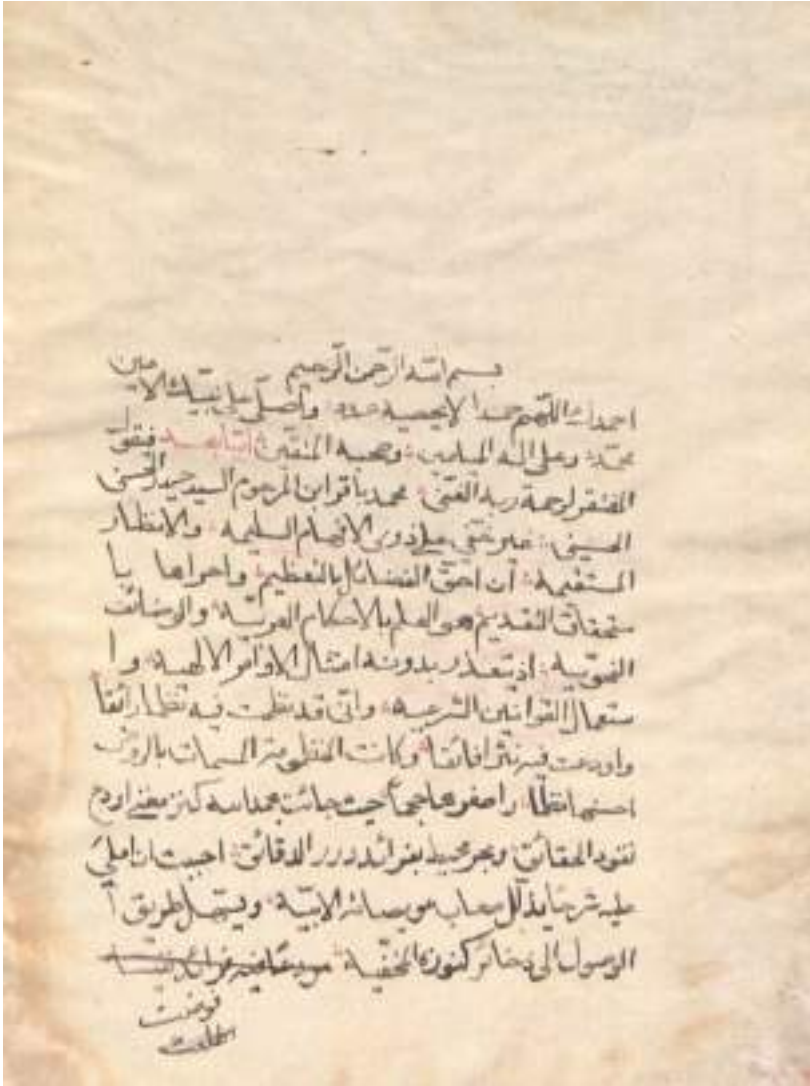 بسم الله الرحمن الرحيم
احمدك اللهم حمدا لا يحصيه عدد واصلي على نبيك الامين
محمد وعلى اله الميامين وصحبه المتقين اما بعد فيقول
المفتقر لرحمة ربه الغني محمد باقر ابن المرحوم السيد حيدر الحسني
الحسيني غير خفي على ذوي الافهام السليمه والانظار
المستقيمة ان احق الفضائل بالتعظيم واحراها با
ستحقاق التقديم هو العلم بالاحكام العربية والوضائف
النحوية اذ يتعذر بدونه امتثال الاوامر الالهية وا
ستعمال القوانين الشرعيه واني قد نظمت فيه نظما رائقا
واودعت فيه نثرا فائقا وكانت المنظومة المسمات
احسنها نظما واصغرها حجما حيث جائت بحمد الله كنز معنى
نقود الحقائق وبحر محيط بفرائد درر الدقائق احببت ان املي
عليه شرحا يذلل صعاب عويصاته الابية ويسهل طريق ا
لوصول الى ذخائر كنوزه المخفية